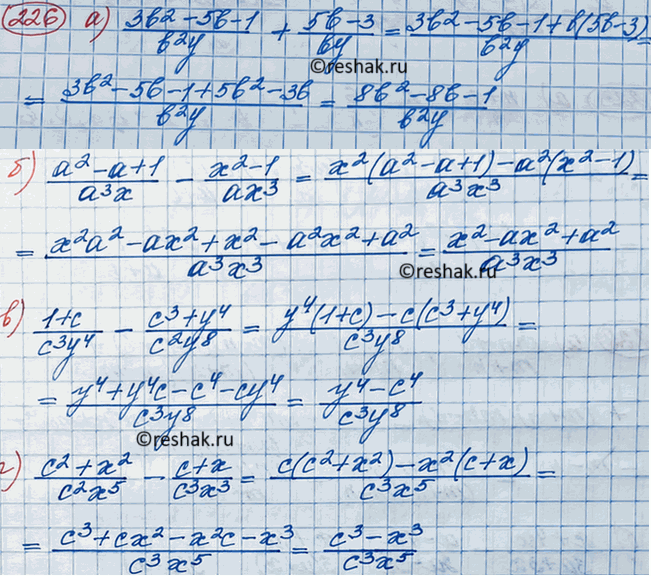 226 а) (3b²-5b-1)/(b²y) + (5b-3)/(by) = (3b²-5b-1+b(5b-3))/(b²y) =
©reshak.ru
= (3b²-5b-1+5b²-3b)/(b²y) = (8b²-8b-1)/(b²y)
б) (a²-a+1)/(a³x) - (x²-1)/(ax³) = (x²(a²-a+1)-a²(x²-1))/(a³x³) =
= (x²a²-ax²+x²-a²x²+a²)/(a³x³) = (x²-ax²+a²)/(a³x³)
©reshak.ru
в) (1+c)/(c³y⁴) - (c³+y⁴)/(c²y⁸) = (y⁴(1+c)-c(c³+y⁴))/(c³y⁸) =
= (y⁴+y⁴c-c⁴-cy⁴)/(c³y⁸) = (y⁴-c⁴)/(c³y⁸)
©reshak.ru
г) (c²+x²)/(c²x⁵) - (c+x)/(c³x³) = (c(c²+x²)-x²(c+x))/(c³x⁵) =
= (c³+cx²-x²c-x³)/(c³x⁵) = (c³-x³)/(c³x⁵)